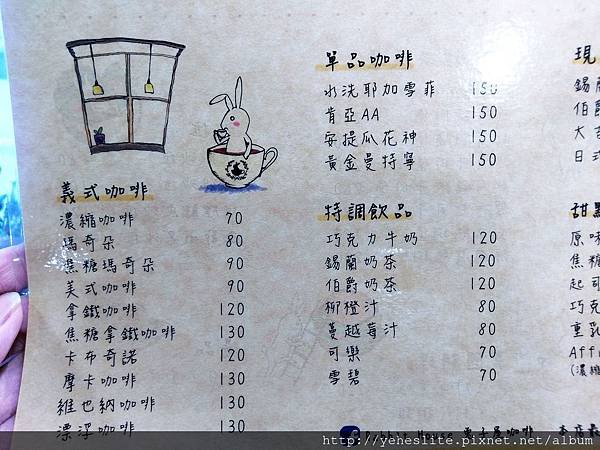 單品咖啡
水洗耶加雪菲 150
肯亞AA 150
安提瓜花神 150
黃金曼特寧 150
義式咖啡
濃縮咖啡 70
瑪奇朵 80
焦糖瑪奇朵 90
美式咖啡 90
拿鐵咖啡 120
焦糖拿鐵咖啡 130
卡布奇諾 120
摩卡咖啡 130
維也納咖啡 130
漂浮咖啡 130
特調飲品
巧克力牛奶 120
錫蘭奶茶 120
伯爵奶茶 120
柳橙汁 80
蔓越莓汁 80
可樂 70
雪碧 70
現
錫蘭
伯爵
大吉
日式
甜點
原味
焦糖
起司
巧克
重乳
Aff
(濃縮
Rabbit House 兔子屋咖啡 本店最
http://yeneslite.pixnet.net/album